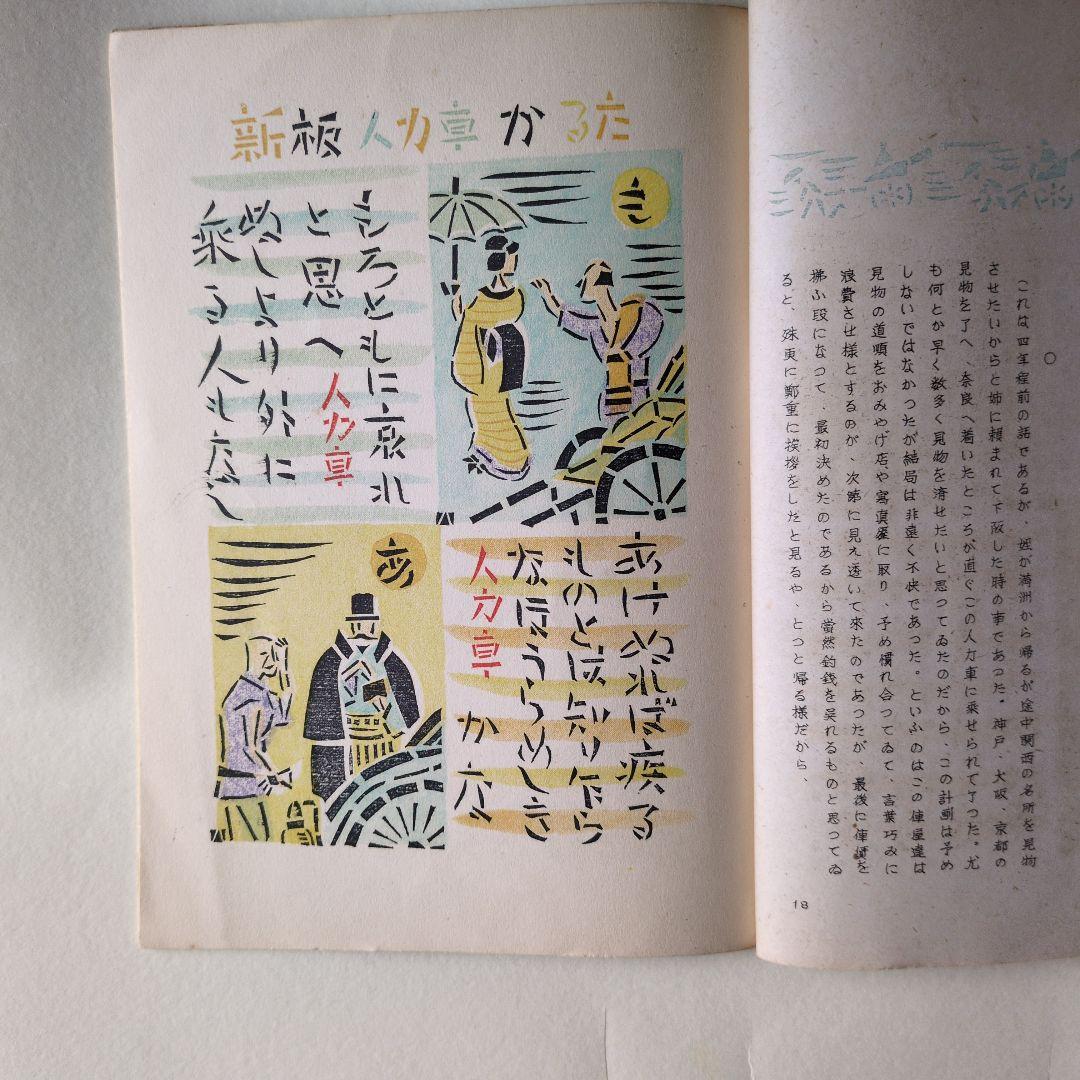 新板人力車かるた
も
もろともに哀れ
と思へ人力車
ぬしより外に
乗る人もなし
あ
あけぬれば疾る
ものとは知り乍ら
なほうらめしき
人力車かな
○
これは四年程前の話であるが、姪が満洲から帰るが途中関西の名所を見物
させたいからと姉に頼まれて下阪した時の事であつた。神戸、大阪、京都の
見物を了へ、奈良へ着いたところが直ぐこの人力車に乗せられて了つた。尤
も何とか早く数多く見物を済せたいと思つてゐたのだから、この計画は予め
しないではなかつたが結局は非遠く不快であつた。といふのはこの俥屋達は
見物の道順をおみやげ店や寫真屋に取り、予め慣れ合つてゐて、言葉巧みに
浪費させ様とするのが、次第に見え透いて來たのであつたが、最後に俥賃を
拂ふ段になつて、最初決めたのであるから當然釣銭を呉れるものと思つてゐ
ると、殊更に鄭重に挨拶をしたと見るや、とつと帰る様だから、
18